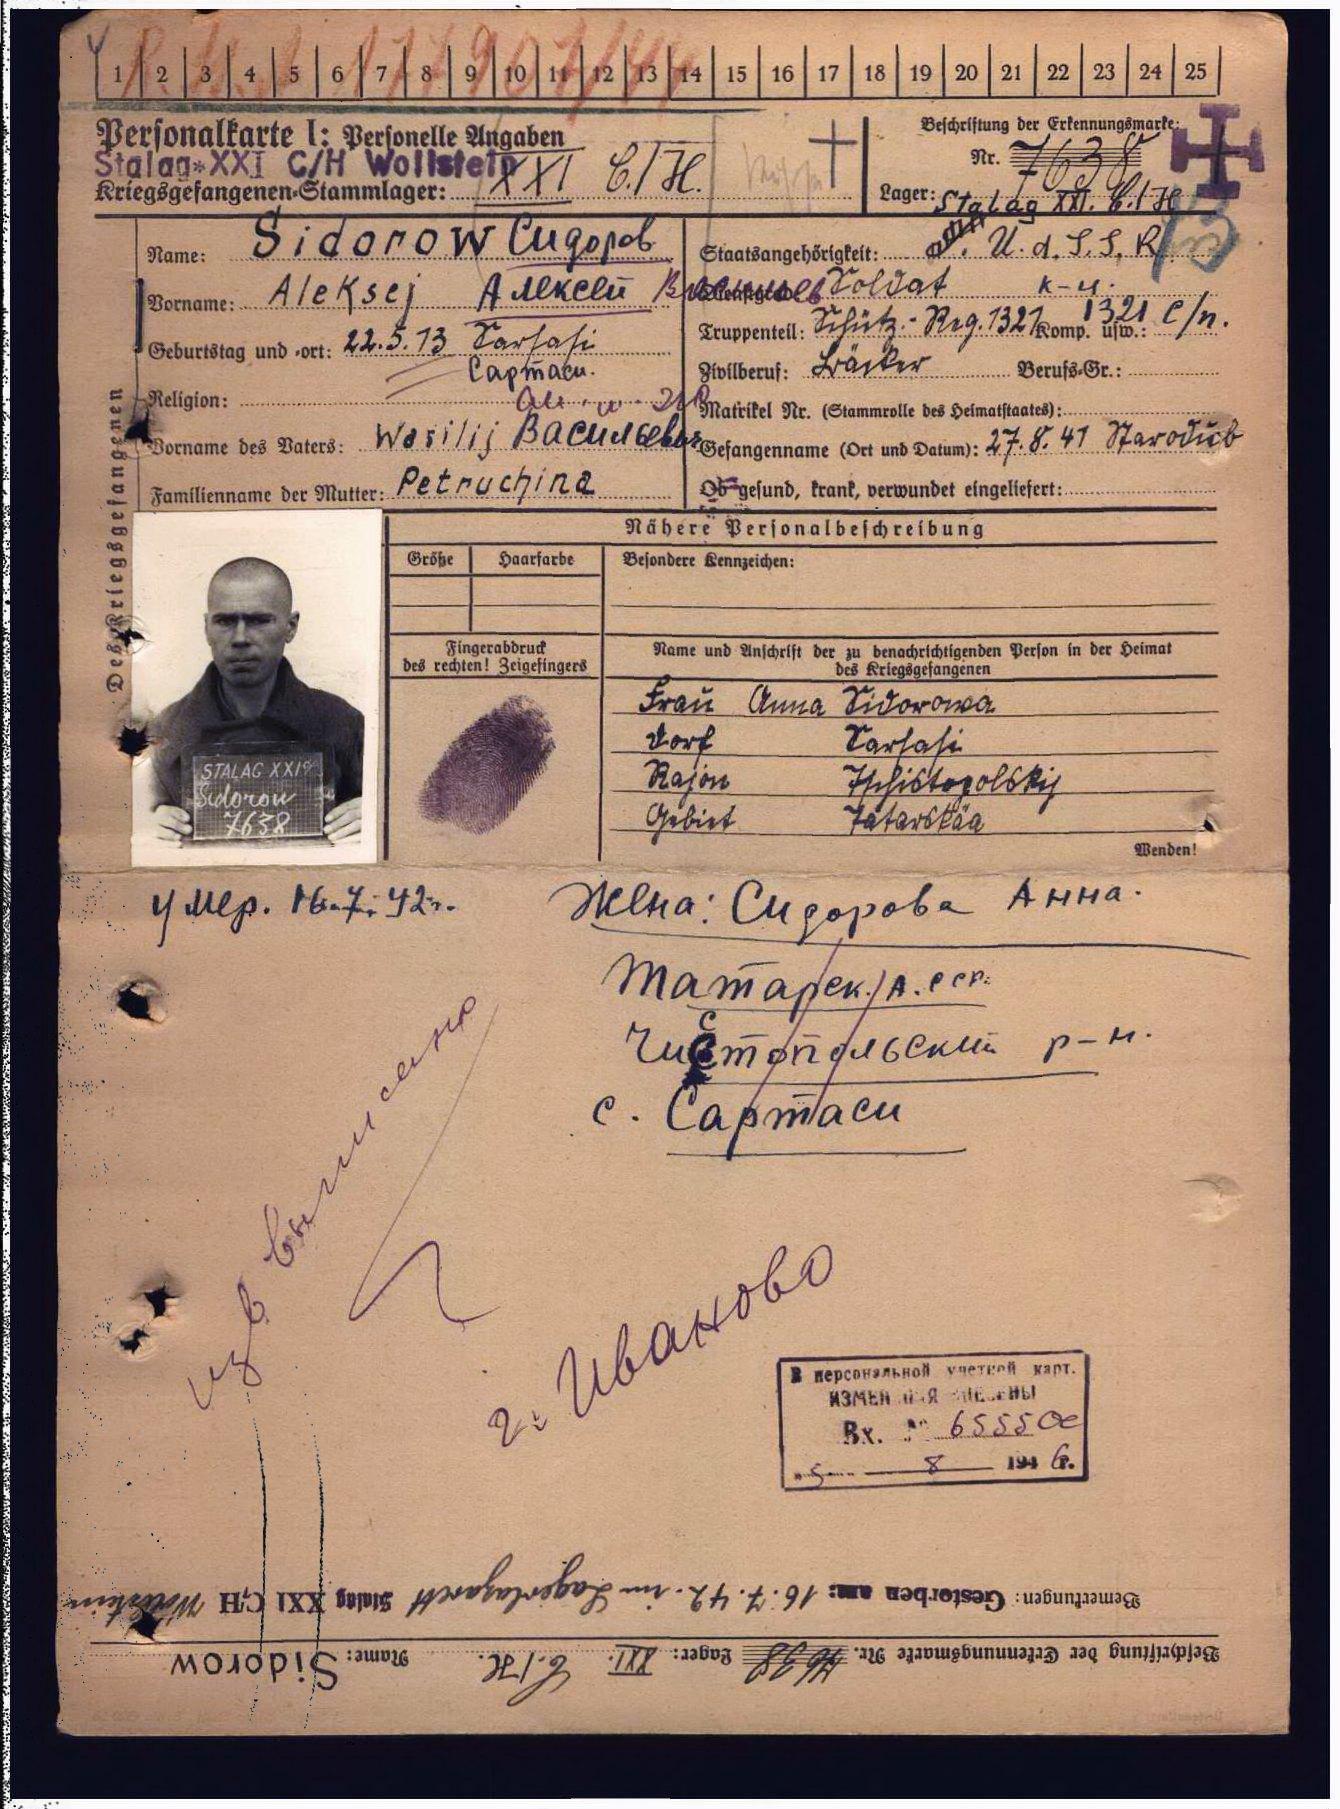 1 2 3 4 5 6 7 8 9 10 11 12 13 14 15 16 17 18 19 20 21 22 23 24 25
Personalkarte I: Personelle Angaben
Stalag XXI C/H Wollstein
Kriegsgefangenen-Stammlager: XXI C./H.
Beschriftung der Erkennungsmarke:
Nr. 7638
Lager: Stalag XXI. C./H
Name: Sidorow Сидоров
Vorname: Aleksej Алексей
Geburtstag und -ort: 22.5.13 Sarsasi
Сартаси.
Religion:
Vorname des Vaters: Wasilij Васильевич
Familienname der Mutter: Petruchina
Staatsangehörigkeit: U.d.S.S.R
Soldat к-ц.
Truppenteil: Schütz.-Reg. 1321 Komp. usw.: 1321 с/п.
Zivilberuf: Bäcker Berufs-Gr.:
Matrikel Nr. (Stammrolle des Heimatstaates):
Gefangennahme (Ort und Datum): 27.8.41 Starodub
Ob gesund, krank, verwundet eingeliefert:
Der Kriegsgefangenen
Nähere Personalbeschreibung
Größe Haarfarbe Besondere Kennzeichen:
Fingerabdruck
des rechten! Zeigefingers
Name und Anschrift der zu benachrichtigenden Person in der Heimat
des Kriegsgefangenen
Frau Anna Sidorowa
Dorf Sarsasi
Rajon Tschistopolskij
Gebiet Tatarskaa
Wenden!
STALAG XXI
Sidorow
7638
умер. 16.7.42г.
Жена: Сидорова Анна.
Татарск. А.ССР.
Чистопольский р-н.
с. Сартаси
изв выписано
г. Иваново
В персональной учетной карт.
ИЗМЕНЕНИЯ ВНЕСЕНЫ
Вх. № 65550с
"5" 8 1946г.
Bemerkungen: Gestorben am: 16.7.42. im Lagerlazarett Stalag XXI C/H Wollstein
Beschriftung der Erkennungsmarke Nr. 7638 Lager: XXI. C./H. Name: Sidorow